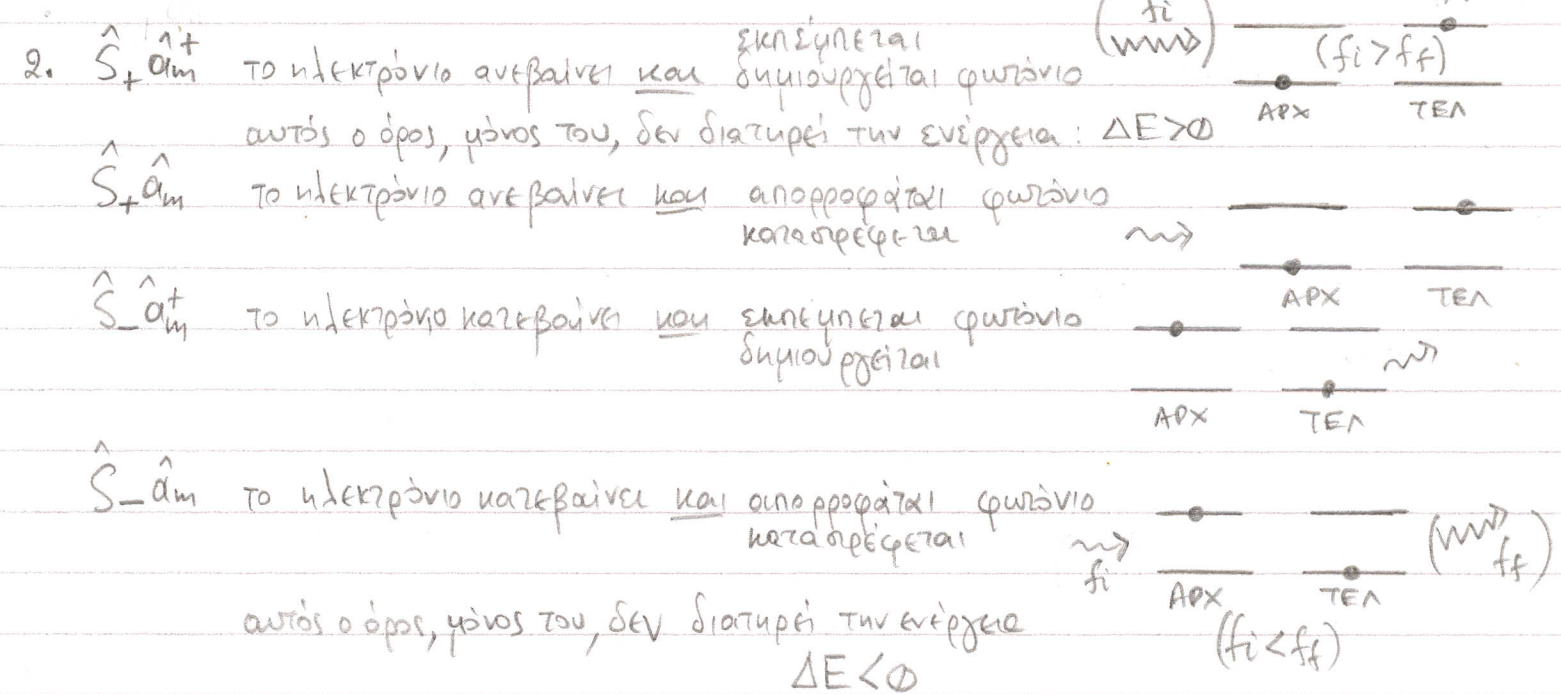 fi
εκπέμπεται
2. Ŝ₊ â⁺ₘ το ηλεκτρόνιο ανεβαίνει και δημιουργείται φωτόνιο (fi > ff)
ΑΡΧ ΤΕΛ
αυτός ο όρος, μόνος του, δεν διατηρεί την ενέργεια: ΔΕ>0
Ŝ₊ âₘ το ηλεκτρόνιο ανεβαίνει και απορροφάται φωτόνιο
καταστρέφεται
ΑΡΧ ΤΕΛ
Ŝ₋ â⁺ₘ το ηλεκτρόνιο κατεβαίνει και εκπέμπεται φωτόνιο
δημιουργείται
ΑΡΧ ΤΕΛ
Ŝ₋ âₘ το ηλεκτρόνιο κατεβαίνει και απορροφάται φωτόνιο
καταστρέφεται fi ff
ΑΡΧ ΤΕΛ
αυτός ο όρος, μόνος του, δεν διατηρεί την ενέργεια (fi < ff)
ΔΕ<0